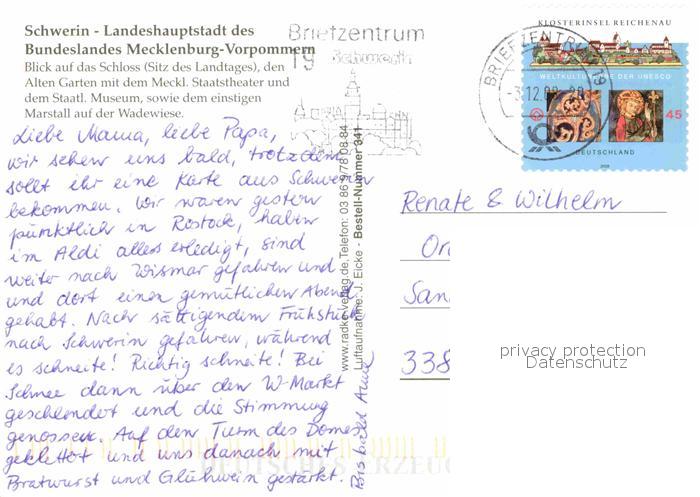 Schwerin - Landeshauptstadt des
Bundeslandes Mecklenburg-Vorpommern
Blick auf das Schloss (Sitz des Landtages), den
Alten Garten mit dem Meckl. Staatstheater und
dem Staatl. Museum, sowie dem einstigen
Marstall auf der Wadewiese.
Briefzentrum
19
Schwerin
BRIEFZENTRUM 19
-3.12.08
KLOSTERINSEL REICHENAU
WELTKULTURERBE DER UNESCO
45
DEUTSCHLAND
2008
Liebe Mama, liebe Papa,
wir sehen uns bald, trotzdem
sollt ihr eine Karte aus Schwerin
bekommen. Wir waren gestern
pünktlich in Rostock, haben
im Aldi alles erledigt, sind
weiter nach Wismar gefahren und
und dort einen gemütlichen Abend
gehabt. Nach sättigendem Frühstück
nach Schwerin gefahren, während
es schneite! Richtig schneite! Bei
Schnee dann über den W-Markt
geschlendert und die Stimmung
genossen. Auf den Turm des Domes
geklettert und uns danach mit
Bratwurst und Glühwein gestärkt.
Bis bald Anna
www.radke-verlag.de, Telefon: 03 863/78 08 84
Luftaufnahme: J. Eicke - Bestell-Nummer 341
Renate & Wilhelm
Or
San
338
privacy protection
Datenschutz